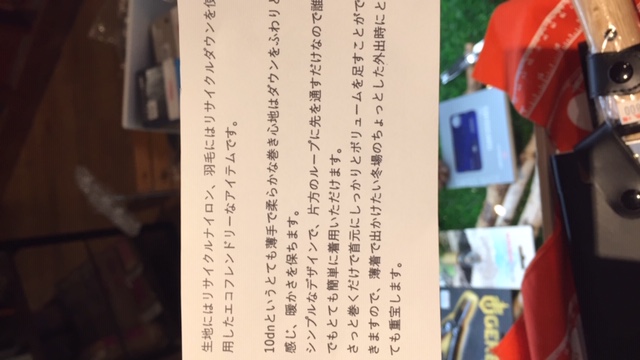 生地にはリサイクルナイロン、羽毛にはリサイクルダウンを使
用したエコフレンドリーなアイテムです。
10dnというとても薄手で柔らかな巻き心地はダウンをふわりと
感じ、暖かさを保ちます。
シンプルなデザインで、片方のループに先を通すだけなので誰
でもとても簡単に着用いただけます。
さっと巻くだけで首元にしっかりとボリュームを足すことがで
きますので、薄着で出かけたい冬場のちょっとした外出時にと
ても重宝します。
GE